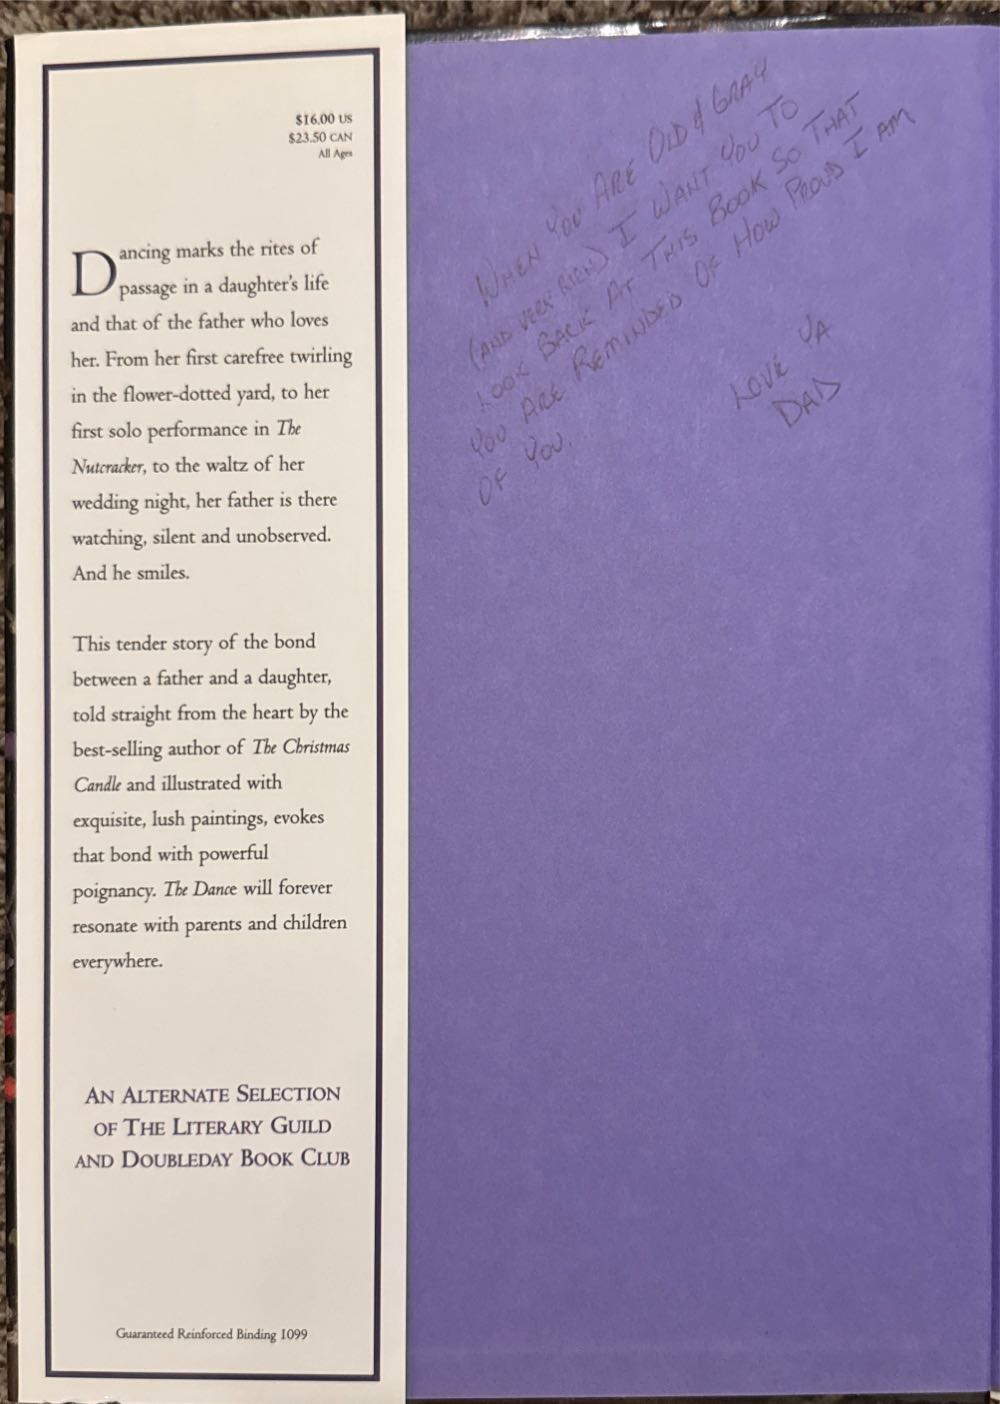 $16.00 US
$23.50 CAN
All Ages
Dancing marks the rites of
passage in a daughter's life
and that of the father who loves
her. From her first carefree twirling
in the flower-dotted yard, to her
first solo performance in The
Nutcracker, to the waltz of her
wedding night, her father is there
watching, silent and unobserved.
And he smiles.
This tender story of the bond
between a father and a daughter,
told straight from the heart by the
best-selling author of The Christmas
Candle and illustrated with
exquisite, lush paintings, evokes
that bond with powerful
poignancy. The Dance will forever
resonate with parents and children
everywhere.
AN ALTERNATE SELECTION
OF THE LITERARY GUILD
AND DOUBLEDAY BOOK CLUB
Guaranteed Reinforced Binding 1099
WHEN YOU ARE OLD & GRAY
(AND VERY RICH) I WANT YOU TO
LOOK BACK AT THIS BOOK SO THAT
YOU ARE REMINDED OF HOW PROUD I AM
OF YOU.
LOVE YA
DAD